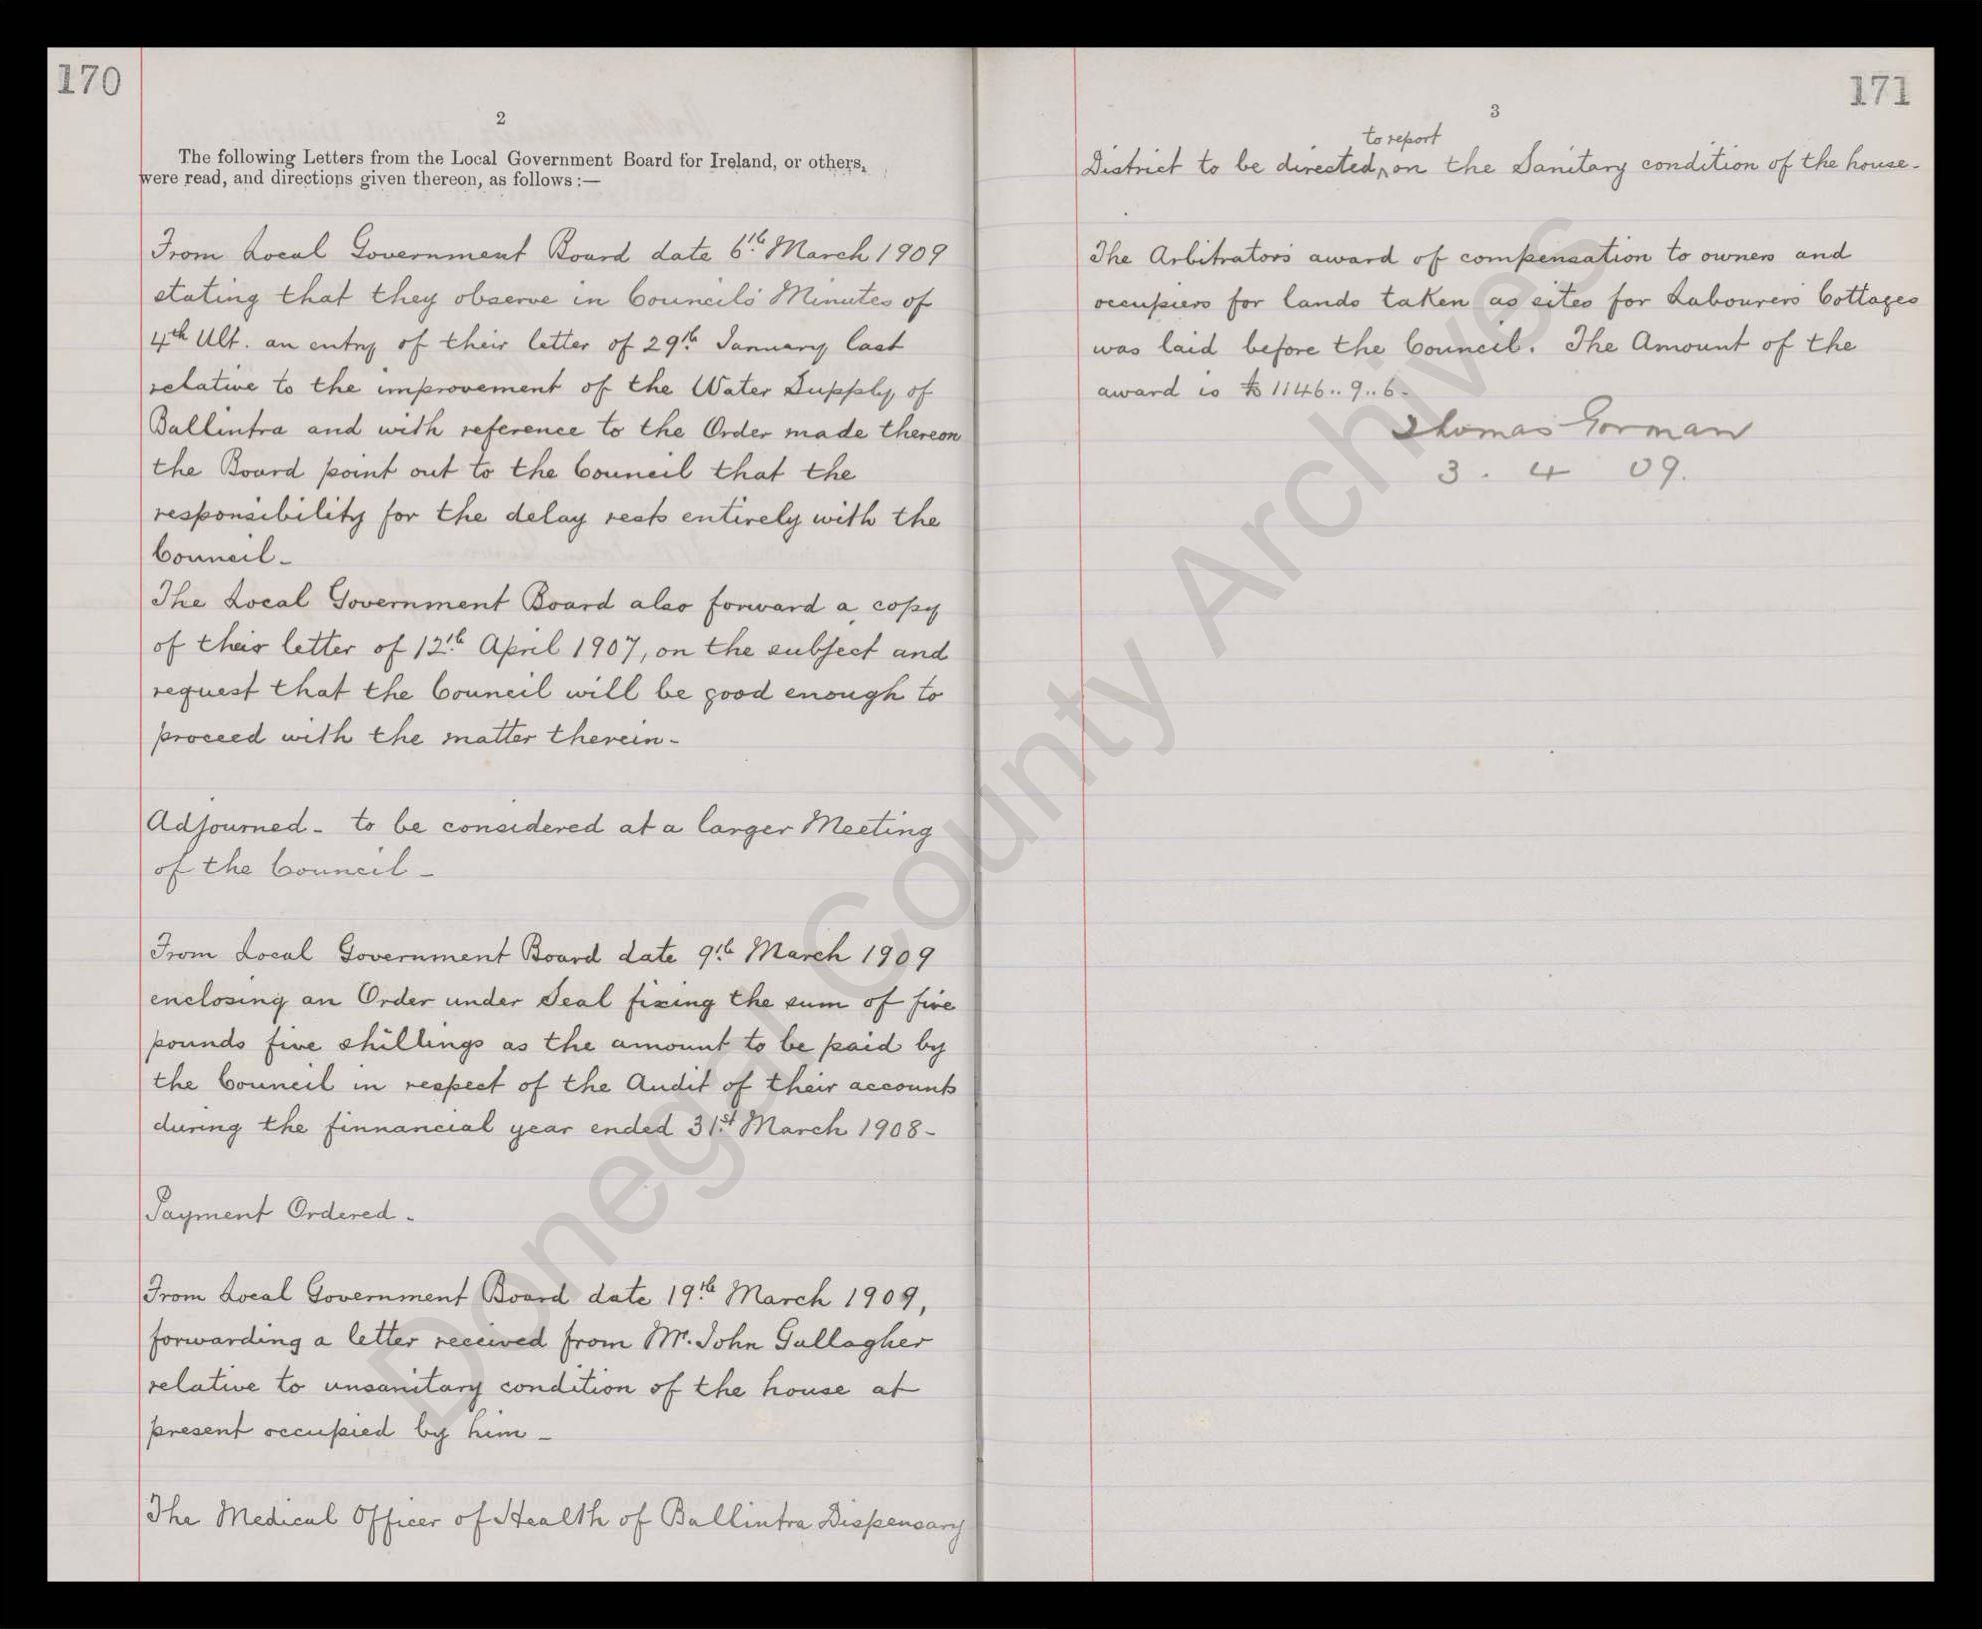 170
2
The following Letters from the Local Government Board for Ireland, or others,
were read, and directions given thereon, as follows :—
From Local Government Board date 6th March 1909
stating that they observe in Council's Minutes of
4th Ult. an entry of their letter of 29th January last
relative to the improvement of the Water Supply of
Ballintra and with reference to the Order made thereon
the Board point out to the Council that the
responsibility for the delay rests entirely with the
Council-
The Local Government Board also forward a copy
of their letter of 12th April 1907, on the subject and
request that the Council will be good enough to
proceed with the matter therein-
Adjourned- to be considered at a larger Meeting
of the Council-
From Local Government Board date 9th March 1909
enclosing an Order under Seal fixing the sum of five
pounds five shillings as the amount to be paid by
the Council in respect of the Audit of their accounts
during the finnancial year ended 31st March 1908-
Payment Ordered-
From Local Government Board date 19th March 1909,
forwarding a letter received from Mr. John Gallagher
relative to unsanitary condition of the house at
present occupied by him-
The Medical Officer of Health of Ballintra Dispensary
171
3
to report
District to be directed ^ on the Sanitary condition of the house-
The Arbitrator's award of compensation to owners and
occupiers for lands taken as sites for Labourers' Cottages
was laid before the Council. The Amount of the
award is £1146..9..6-
Thomas Gorman
3. 4 09.
Donegal County Archives